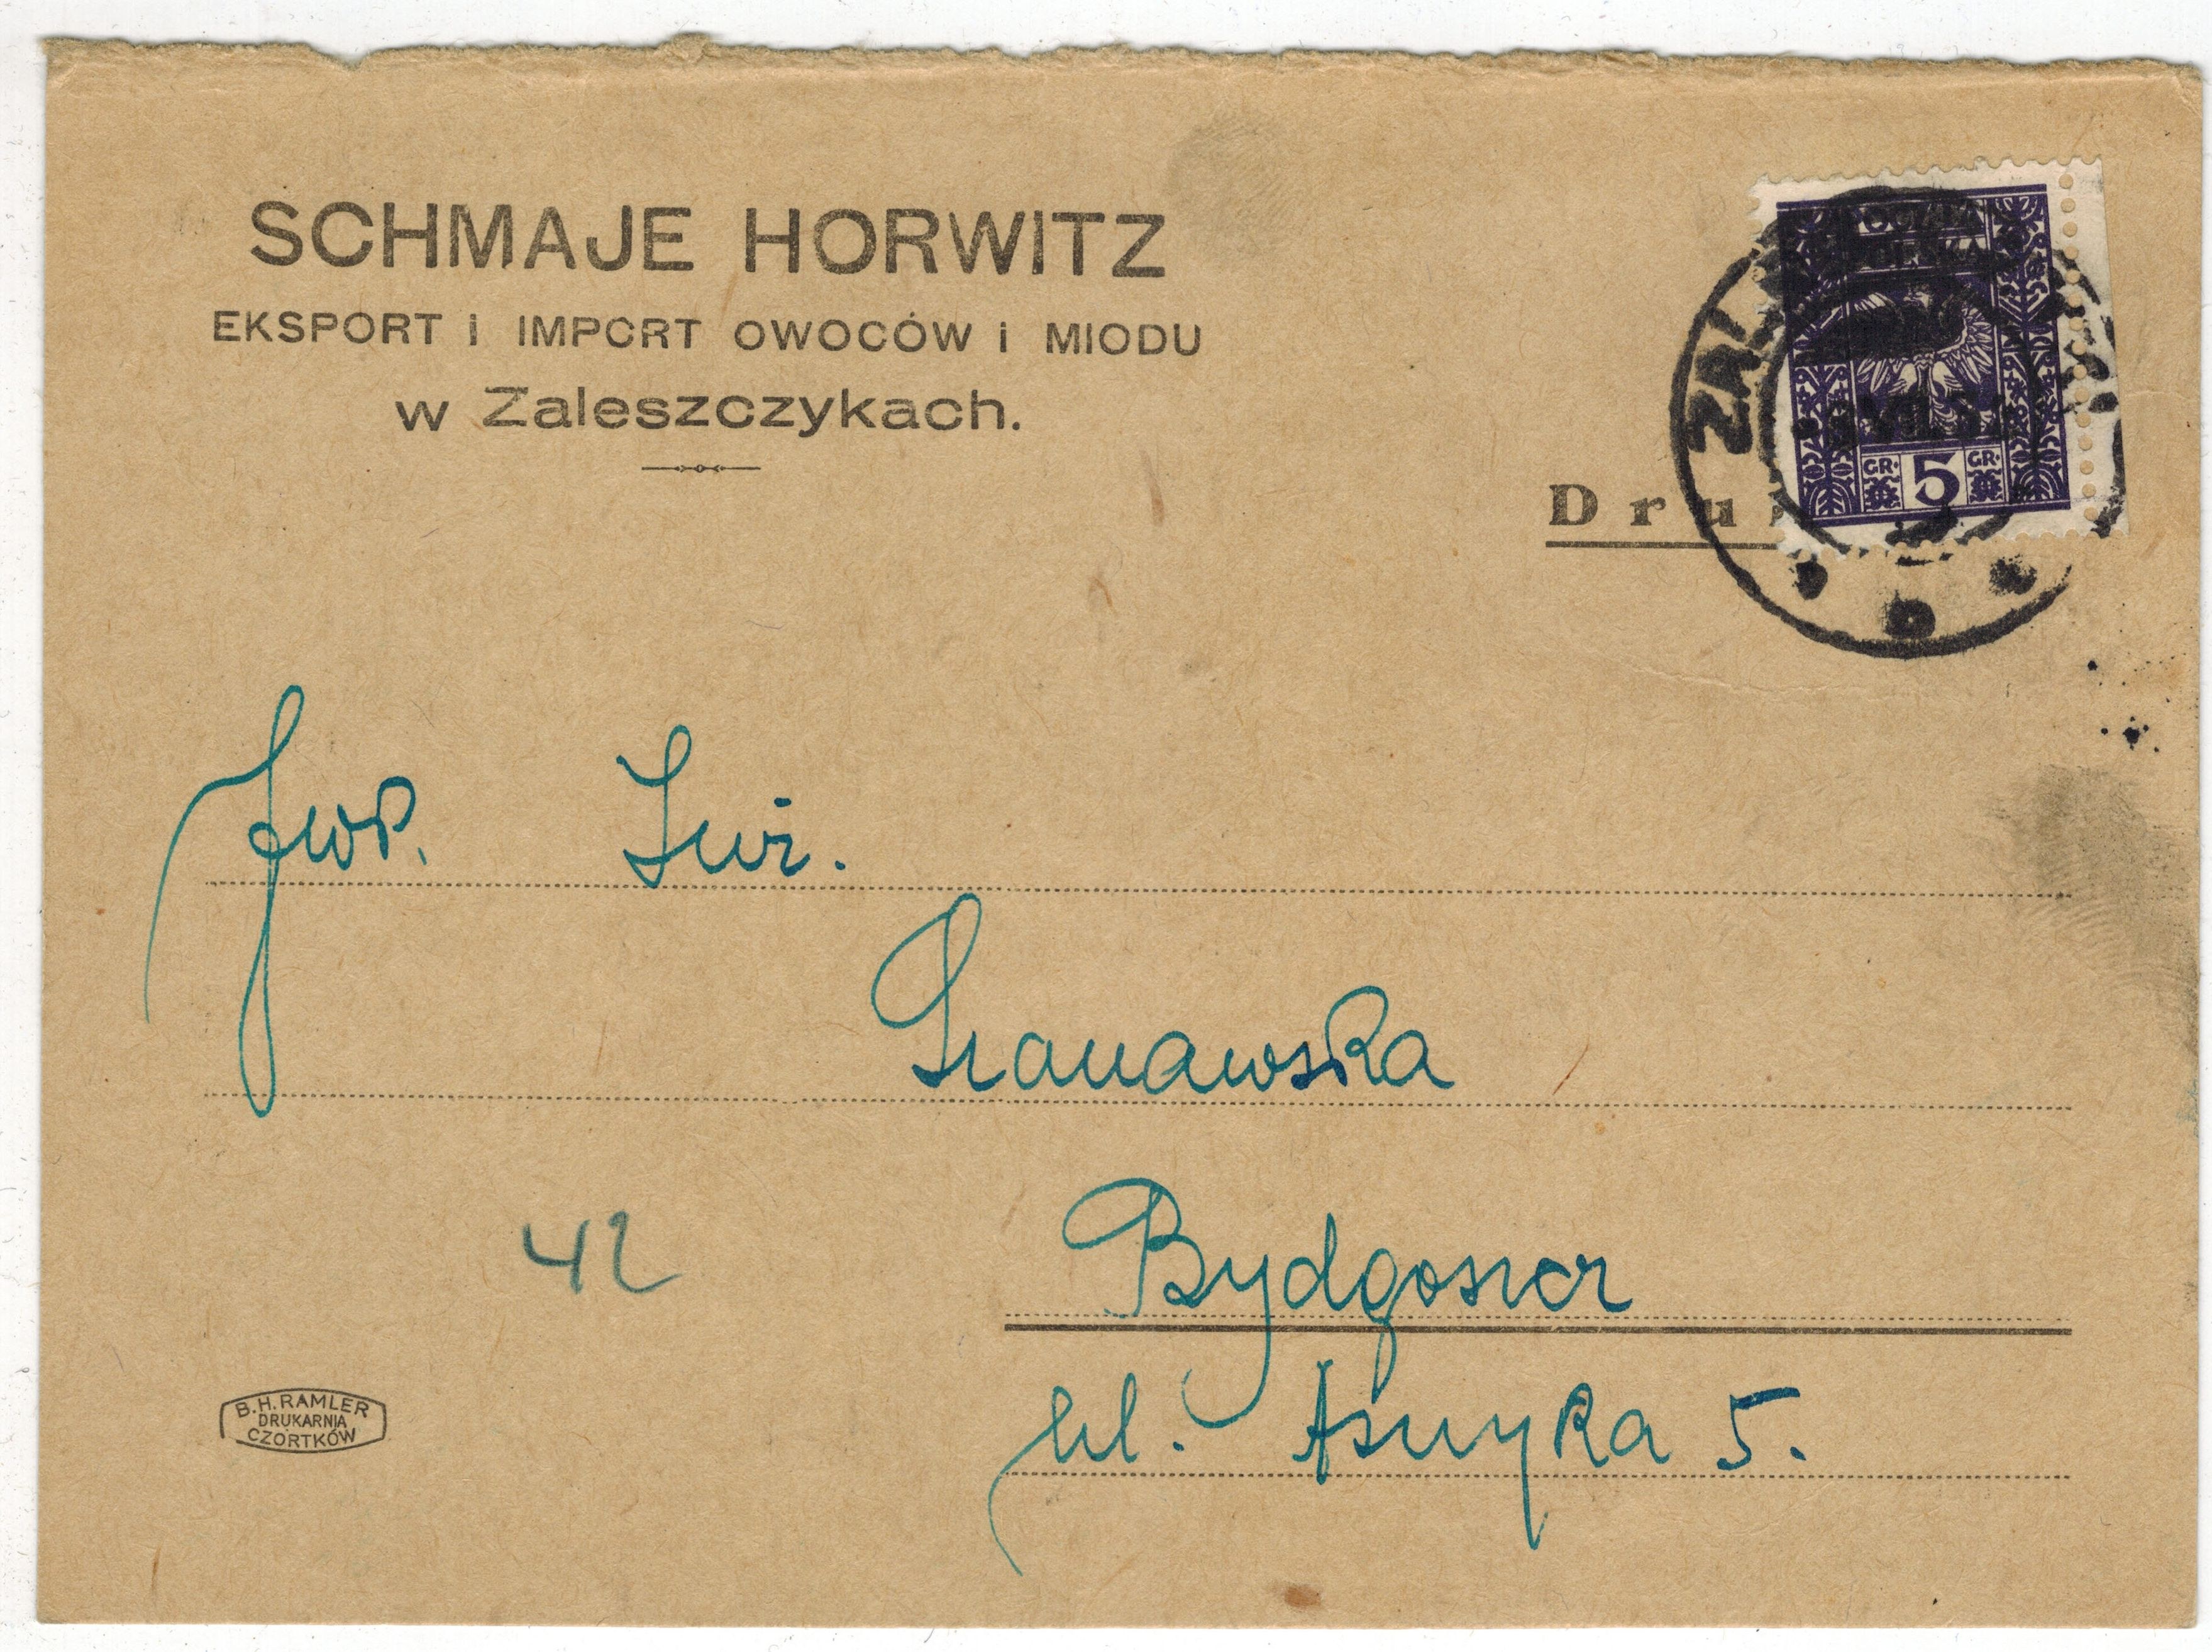 SCHMAJE HORWITZ
EKSPORT i IMPORT OWOCÓW i MIODU
w Zaleszczykach.
POCZTA
POLSKA
GR. 5 GR.
ZAL
Dru
Jwp. Inż.
Bydgoszcz
ul. Asnyka 5.
42
B. H. RAMLER
DRUKARNIA
CZORTKÓW